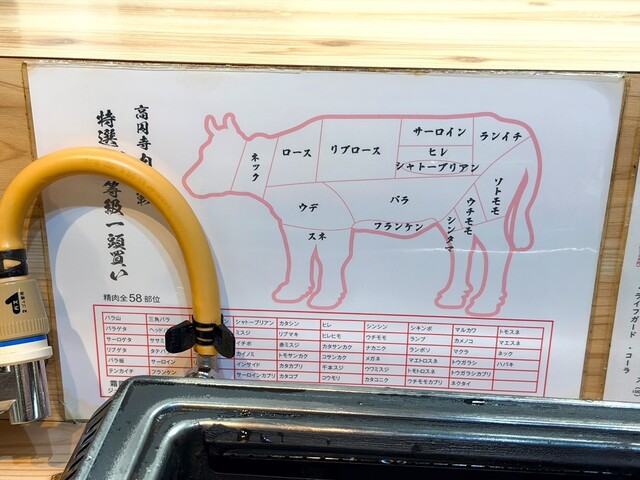 高円寺
特選 等級一頭買い
ネック
ロース
リブロース
サーロイン
ヒレ
シャトーブリアン
ランイチ
ウデ
バラ
フランケン
スネ
シンタマ
ウチモモ
ソトモモ
精肉全58部位
バラ山 三角バラ シャトーブリアン カタシン ヒレ シンシン シキンボ マルカワ トモスネ
バラゲタ ミスジ リブマキ ヒレヒモ ウチモモ ランプ カメノコ マエスネ
サーロゲタ イチボ カタサンカク ナカニク ランボソ マクラ ネック
リブゲタ カイノミ トモサンカク コサンカク メガネ マエトロスネ トウガラシ ハバキ
バラ板 サーロイン インサイド カタカブリ 千本スジ ウワミスジ トモトロスネ トウガラシカブリ
テンカイチ フランケン サーロインカブリ カタコブ コウモリ カタコニク ウチモモカブリ ネクタイ